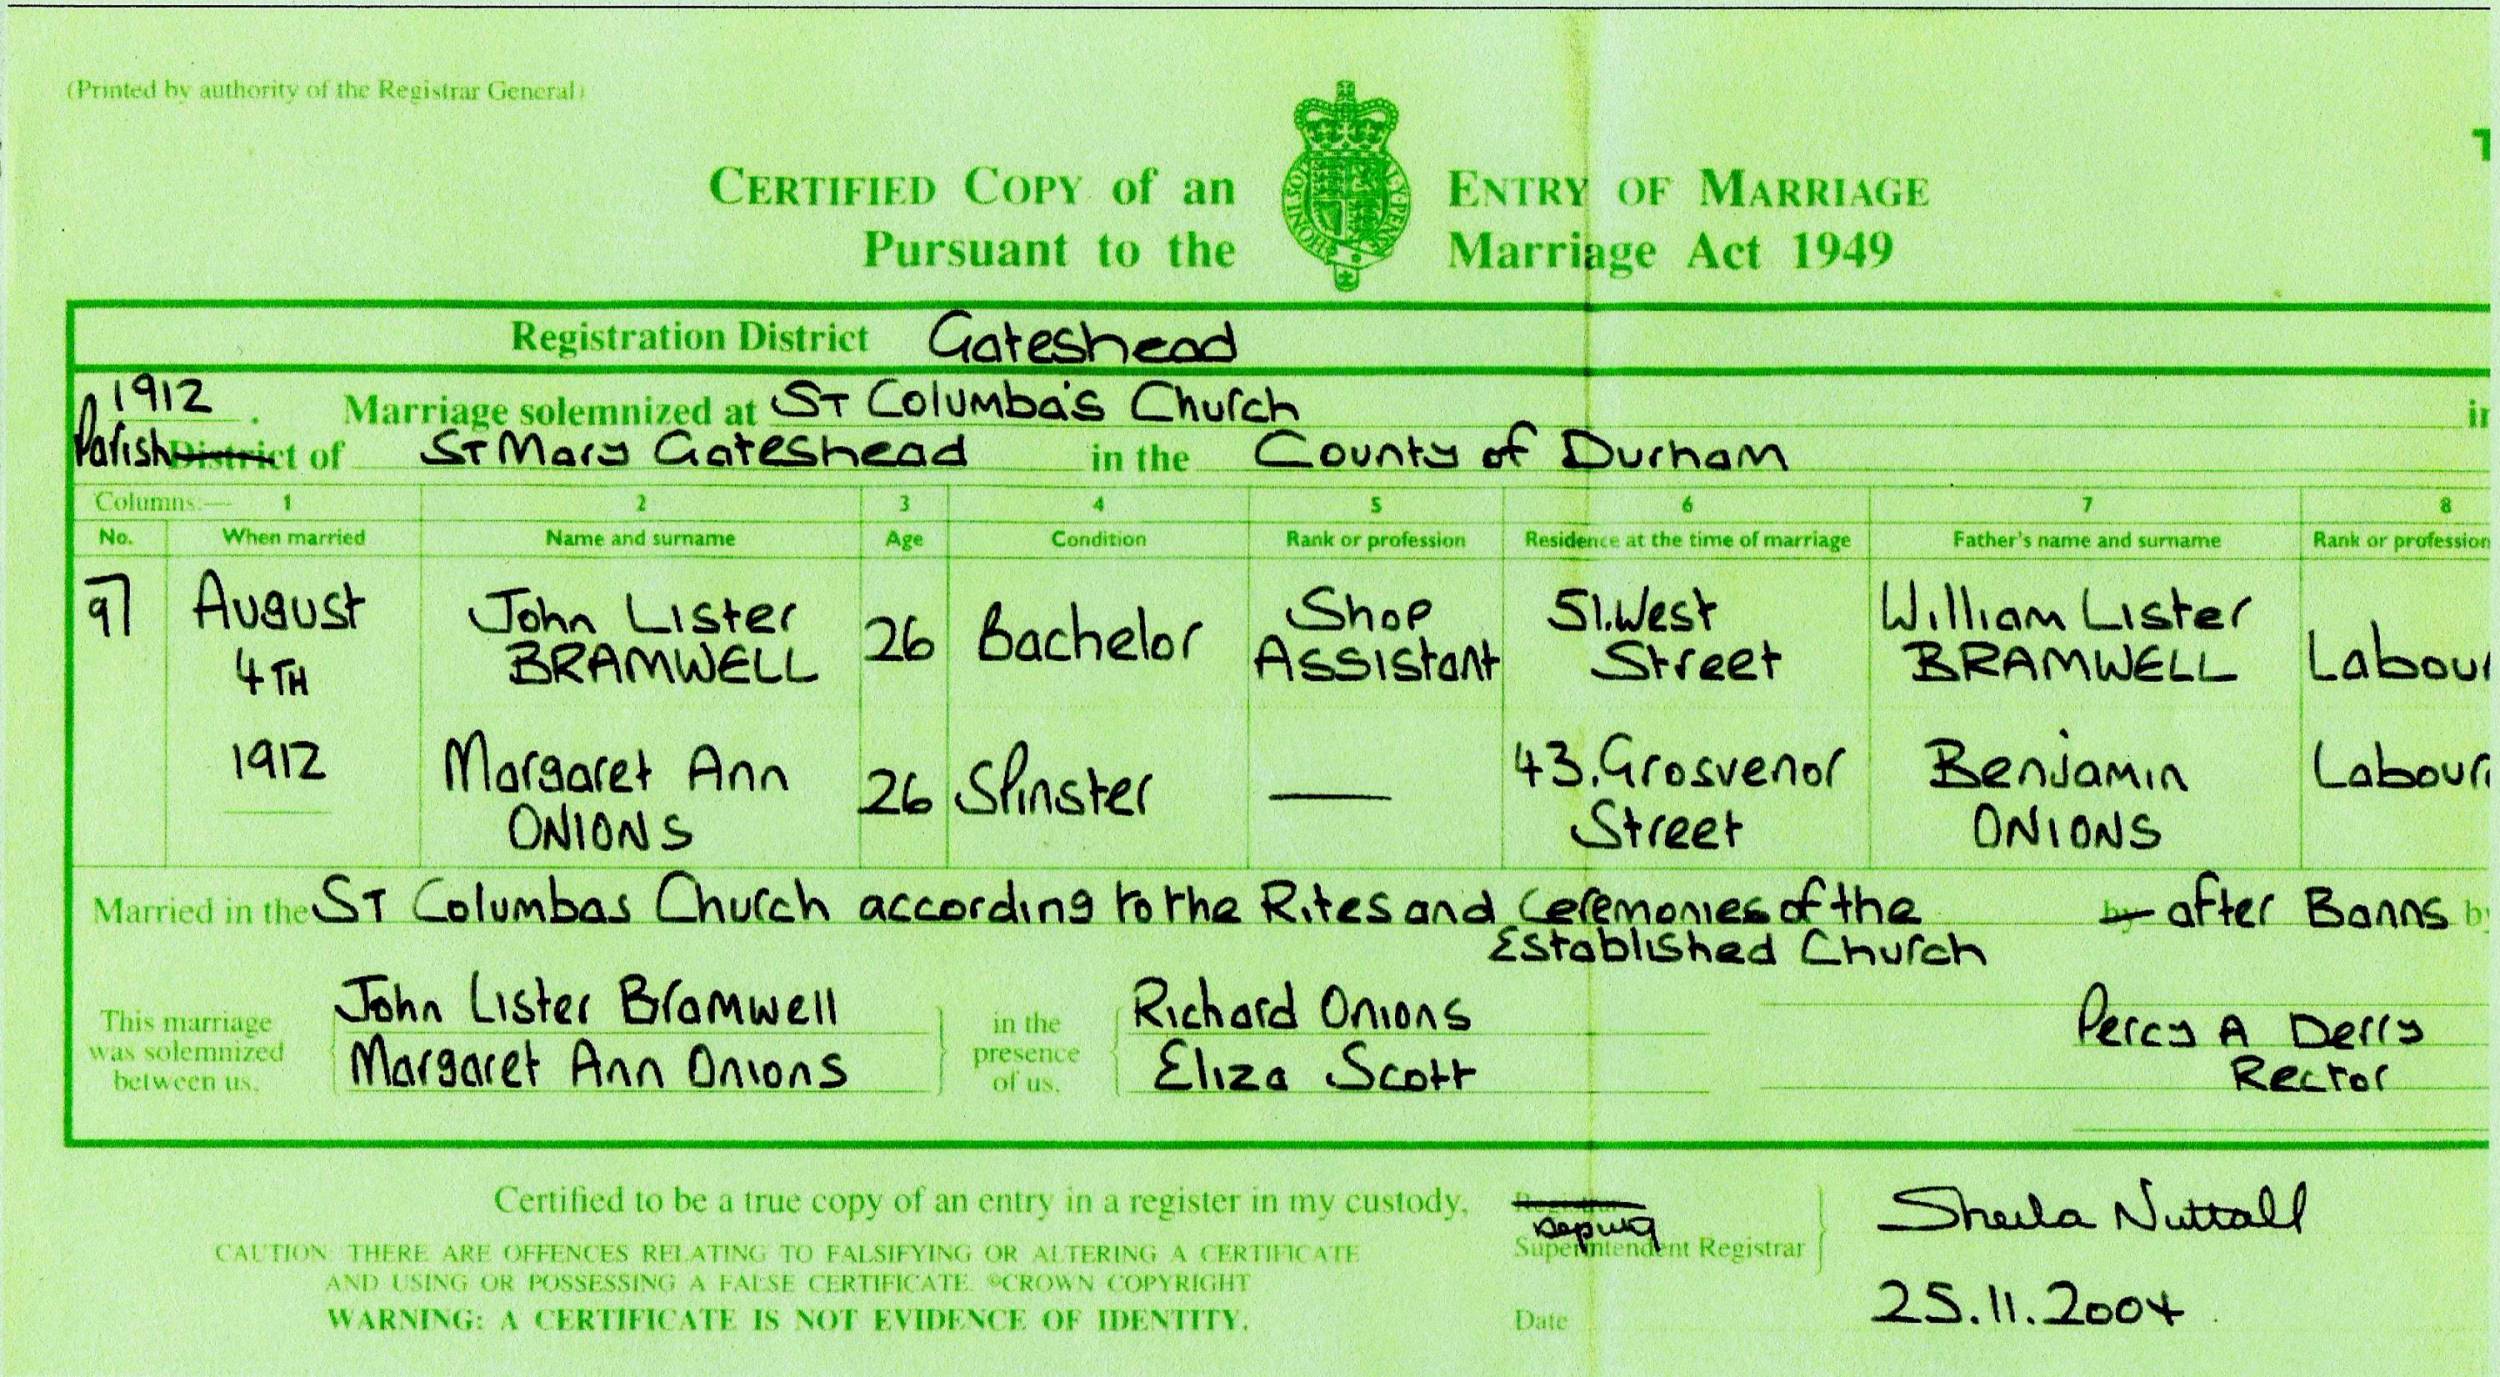 (Printed by authority of the Registrar General)
T
CERTIFIED COPY of an ENTRY OF MARRIAGE
Pursuant to the Marriage Act 1949
Registration District Gateshead
1912. Marriage solemnized at ST Columba's Church in
Parish District of ST Mary Gateshead in the County of Durham
Columns:— 1 2 3 4 5 6 7 8
No. When married Name and surname Age Condition Rank or profession Residence at the time of marriage Father's name and surname Rank or profession
97 August John Lister 26 Bachelor Shop 51.West William Lister Labour
4TH BRAMWELL Assistant Street BRAMWELL
1912 Margaret Ann 26 Spinster — 43.Grosvenor Benjamin Labour
ONIONS Street ONIONS
Married in the ST Columbas Church according to the Rites and Ceremonies of the by after Banns by
Established Church
This marriage was solemnized between us,
John Lister Bramwell
Margaret Ann Onions
in the presence of us,
Richard Onions
Eliza Scott
Percy A Derry
Rector
Certified to be a true copy of an entry in a register in my custody,
Registrar
Deputy
Superintendent Registrar
Sheila Nuttall
CAUTION: THERE ARE OFFENCES RELATING TO FALSIFYING OR ALTERING A CERTIFICATE
AND USING OR POSSESSING A FALSE CERTIFICATE. ©CROWN COPYRIGHT
WARNING: A CERTIFICATE IS NOT EVIDENCE OF IDENTITY.
Date 25.11.2004